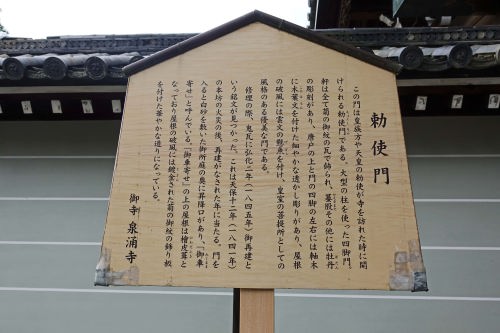 勅使門
この門は皇族方や天皇の勅使が寺を訪れた時に開
けられる勅使門である。大型の柱を使った四脚門。
軒は全て菊の御紋の瓦で飾られ、蟇股その他には牡丹
の彫刻があり、唐戸の上と門の四脚の左右には軸木
に木葉文を付けた細やかな透かし彫りがあり、屋根
の破風には雲文の懸魚を付け、皇室の菩提所としての
風格のある優美な門である。
修理の際、鬼瓦に弘化二年(一八四五年)御再建と
いう銘文が見つかった。これは天保十二年(一八四一年)
の本坊の大火の後、再建がなされた年に当たる。門を
入ると白砂を敷いた御所庭の奥に昇降口があり、「御車
寄せ」と呼んでいる。「御車寄せ」の上の屋根は檜皮葺と
なっており屋根の破風には鍍金された菊の御紋の飾り板
を付けた華やかな造りになっている。
御寺 泉涌寺